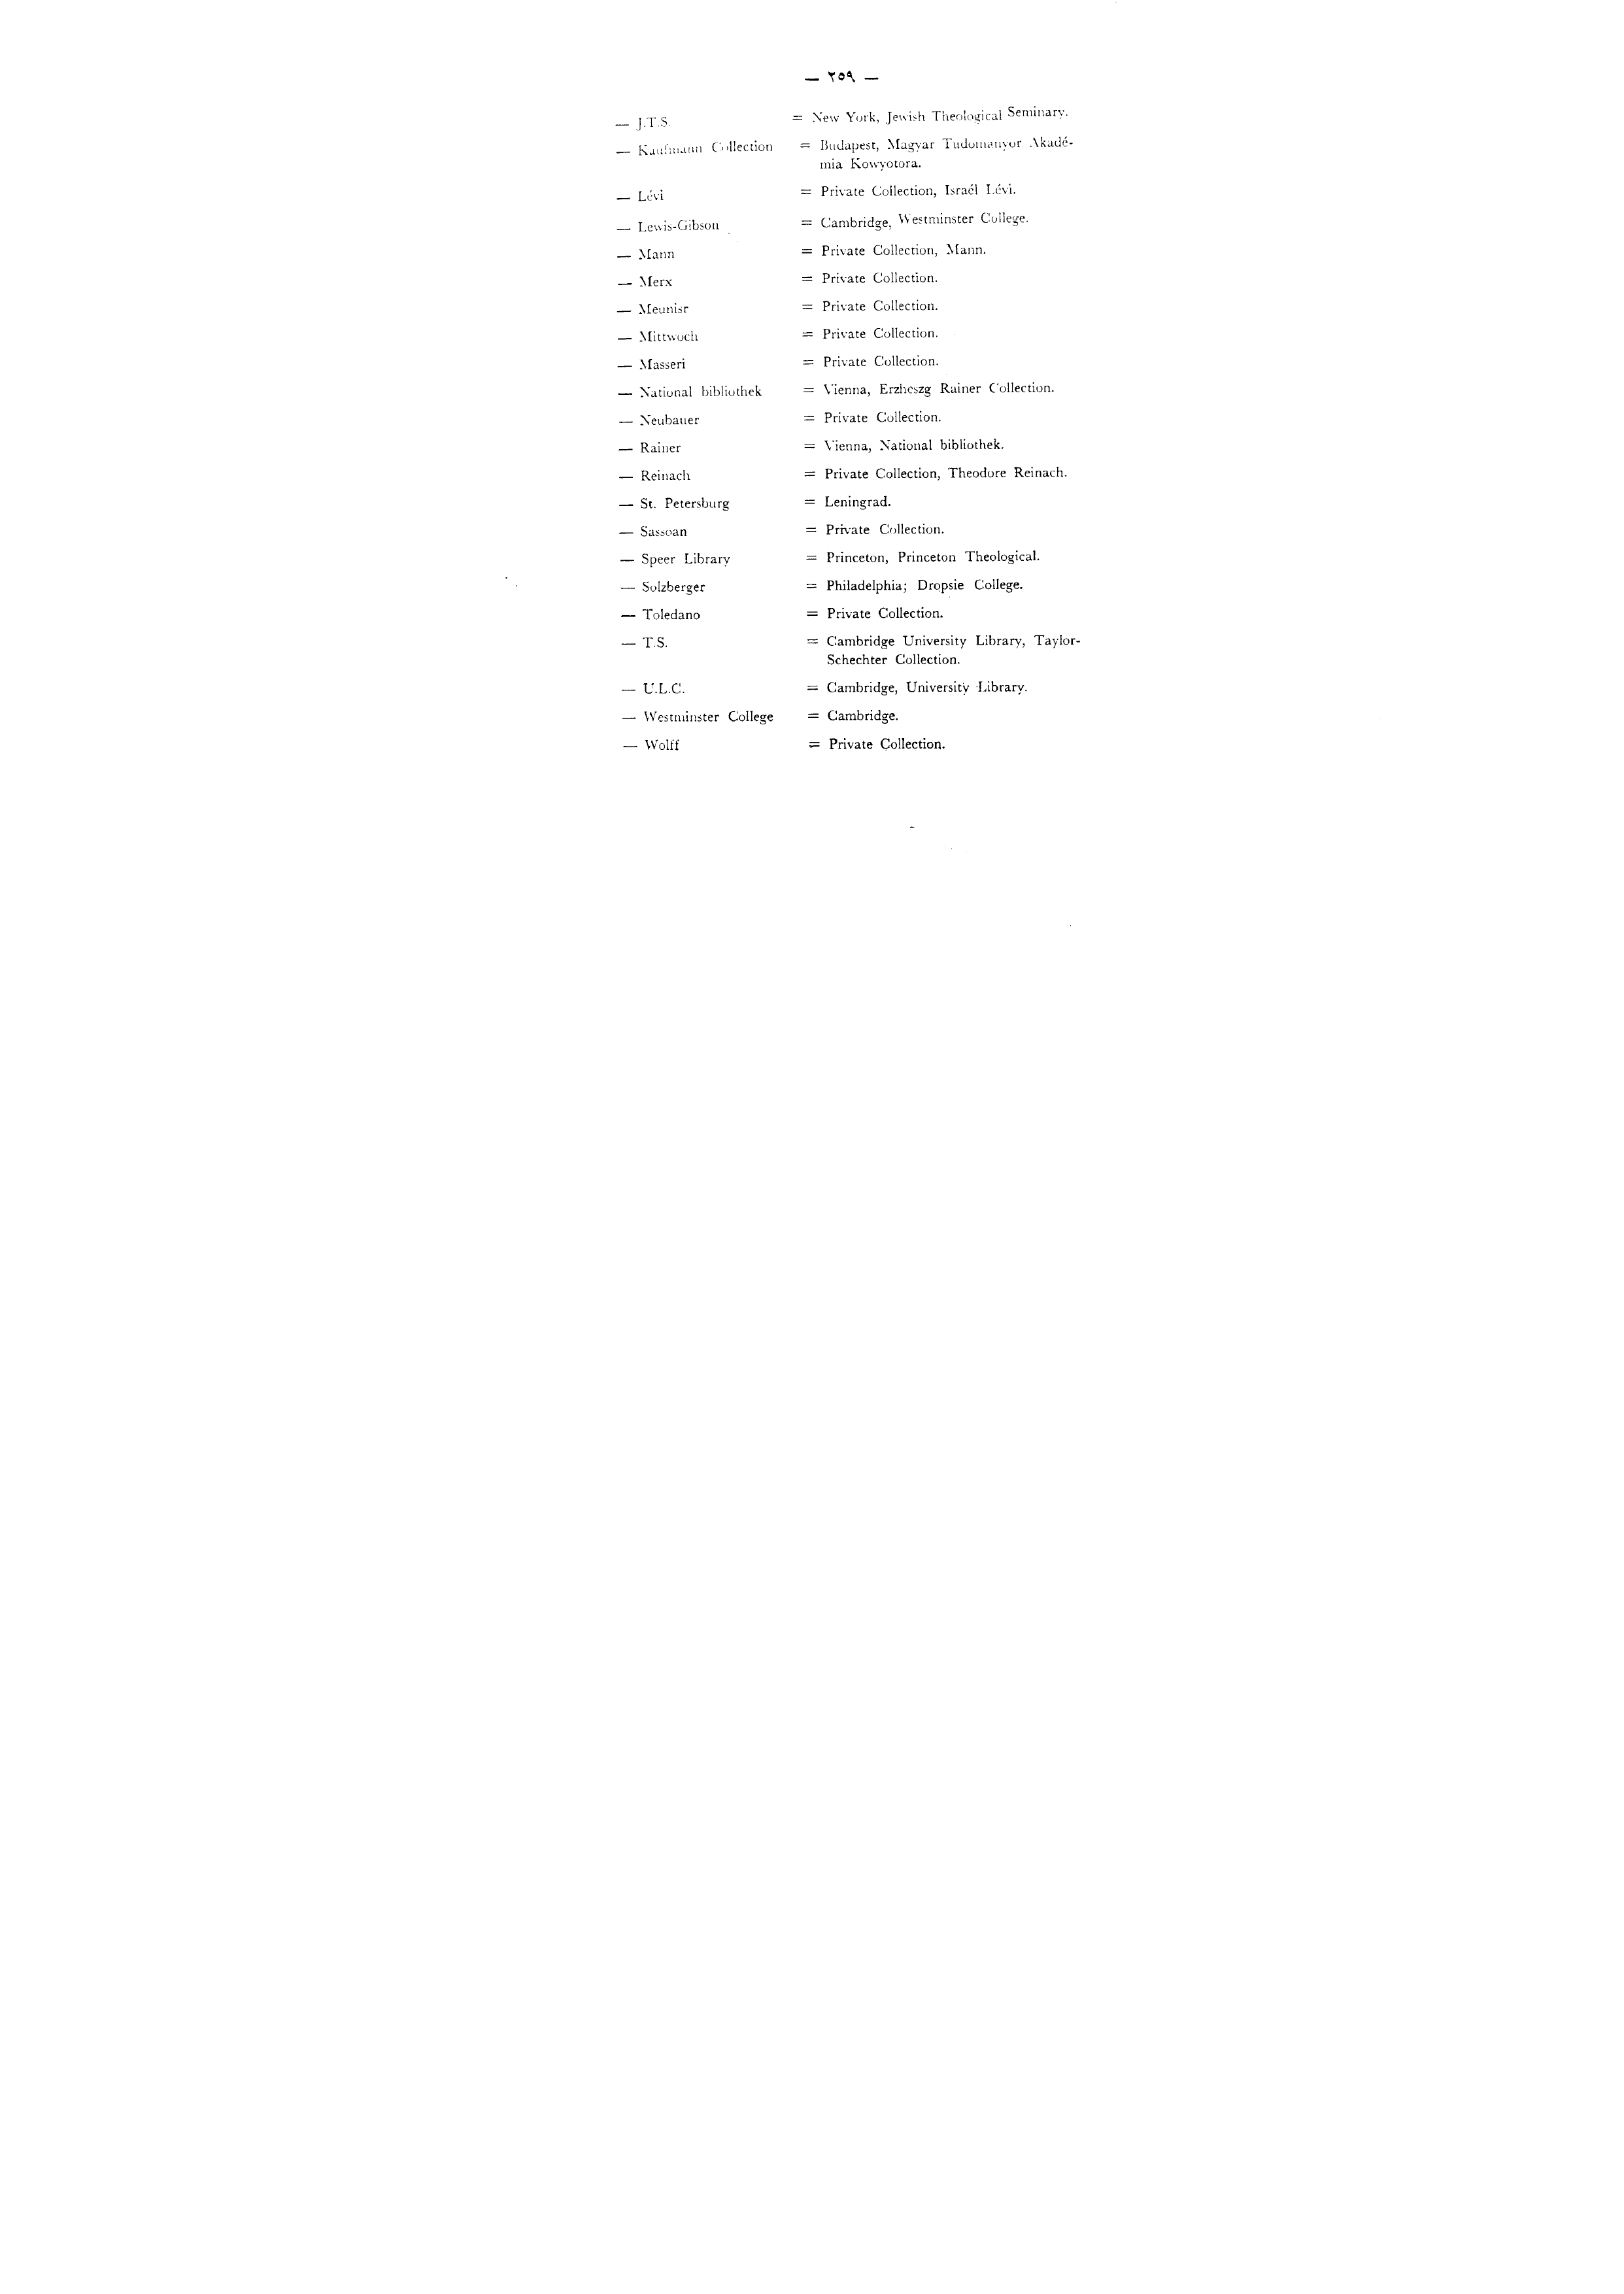 — ٢٥٩ —
— J.T.S. = New York, Jewish Theological Seminary.
— Kaufmann Collection = Budapest, Magyar Tudomanyor Akadé-
mia Kowyotora.
— Lévi = Private Collection, Israél Lévi.
— Lewis-Gibson = Cambridge, Westminster College.
— Mann = Private Collection, Mann.
— Merx = Private Collection.
— Meunisr = Private Collection.
— Mittwoch = Private Collection.
— Masseri = Private Collection.
— National bibliothek = Vienna, Erzheszg Rainer Collection.
— Neubauer = Private Collection.
— Rainer = Vienna, National bibliothek.
— Reinach = Private Collection, Theodore Reinach.
— St. Petersburg = Leningrad.
— Sassoan = Private Collection.
— Speer Library = Princeton, Princeton Theological.
— Solzberger = Philadelphia; Dropsie College.
— Toledano = Private Collection.
— T.S. = Cambridge University Library, Taylor-
Schechter Collection.
— U.L.C. = Cambridge, University Library.
— Westminster College = Cambridge.
— Wolff = Private Collection.